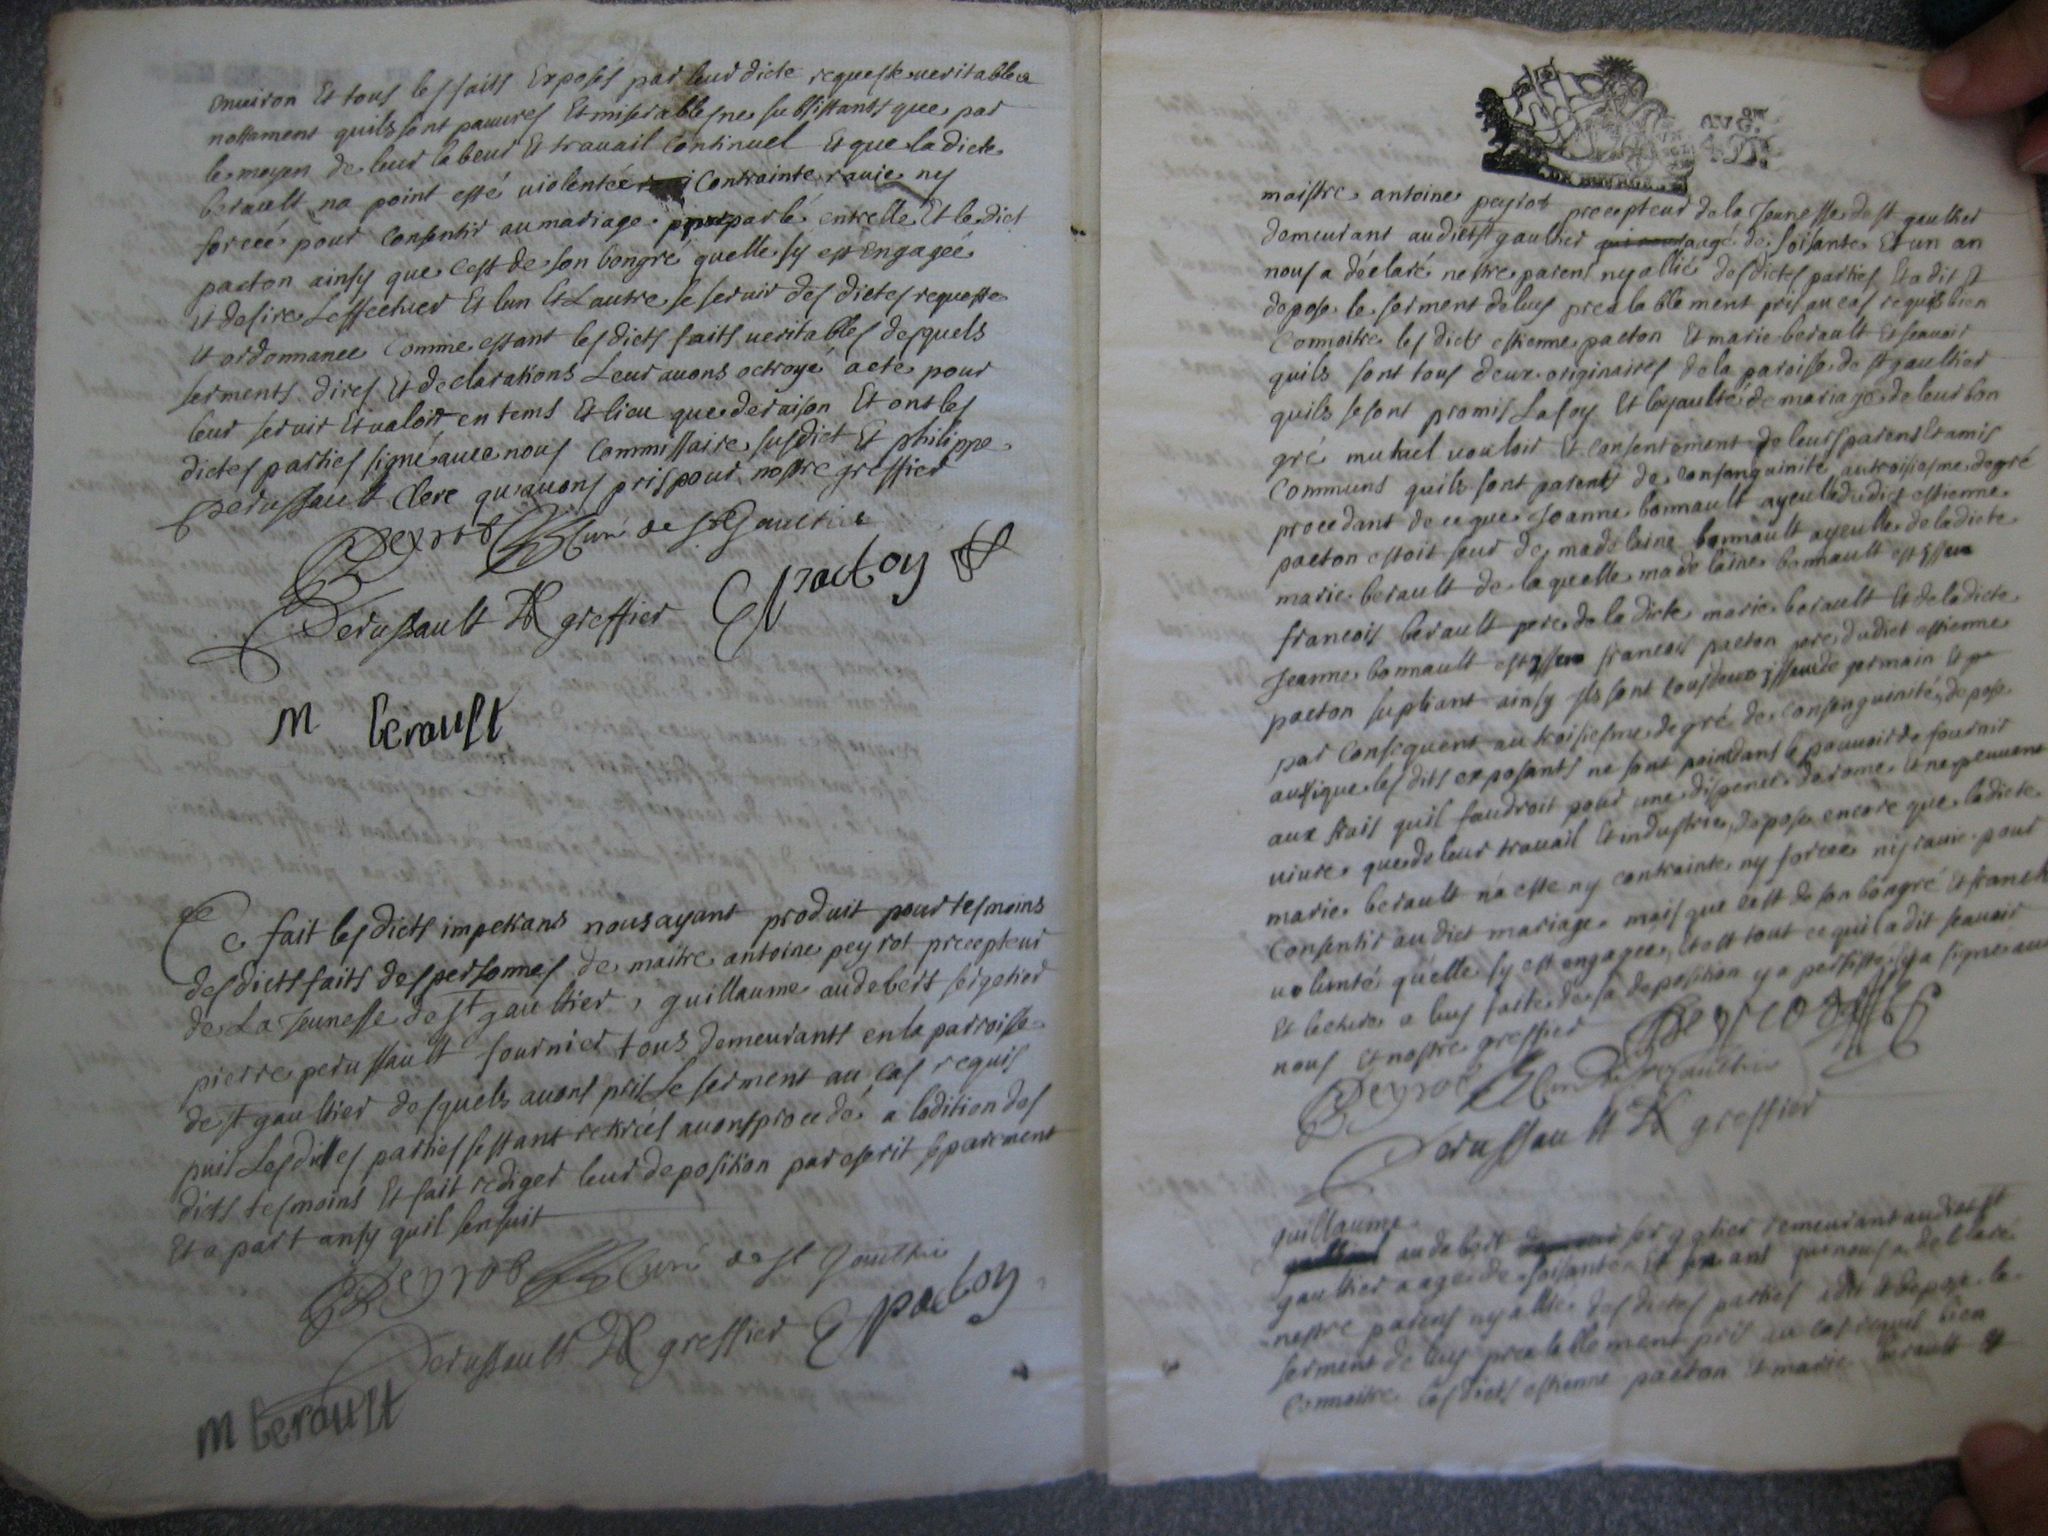 enuiron Et tous les faits Exposés par leur dicte requeste veritables
notament quils sont pauures Et miserables ne subsistants que par
le moyen de leur labeur Et travail Continuel Et que ladicte
berault na point esté violentée Contrainte rauie ny
forcée pour Consentir au mariage pourparlé entrelle Et le dict
pacton ainsy que cest de son bongré quelle sy est Engagée
Et desire Leffectuer Et lun Et Lautre se seruir des dictes requeste
Et ordonnance Comme estant les dicts faits veritables desquels
serments dires Et declarations Leur auons octroyé acte pour
leur seruir Et valoir en tems Et lieu que de raison Et ont les
dictes parties signé auec nous Commissaire susdict Et philippe
perussault Clerc quauons pris pour nostre greffier
Peyrot Curé de St Gaultier
Perussault greffier E pactoy
m berault
Ce fait les dicts impetrans nous ayant produit pour tesmoins
des dicts faits des personnes de maitre antoine peyrot precepteur
de La Jeunesse de st gaultier, guillaume audebert sergetier
pierre perussault fournier tous demeurants en la parroisse
de st gaultier desquels auons pris Le serment au cas requis
puis Lesdittes parties sestant retirées auons procedé a laditien des
dicts tesmoins Et fait rediger leur deposition par escrit separement
Et a part ansy quil sensuit
Peyrot Curé de st Gaultier
Perussault greffier E pactoy
m berault
maistre antoine peyrot precepteur de la Jeunesse de st gaultier
demeurant audict st gaultier aagé de soisante Et un an
nous a déclaré nestre parent ny allié des dictes parties Et a dit Et
depose le serment de luy prealablement pris au cas requis bien
Connoitre les dicts estienne pacton Et marie berault Et scauoir
quils sont tous deux originaires de la paroisse de st gaultier
quils se sont promis La foy Et loyaulté de mariage de leur bon
gré mutuel vouloir Et Consentement de leurs parens Et amis
Communs quils sont parents de Consanguinité au troisiesme degré
procedant de ce que Jeanne bonnault ayeulle dudict estienne
pacton estoit seur de madelaine bonnault ayeulle de ladicte
marie berault de laquelle madelaine bonnault est Isseu
francois berault pere de la dicte marie berault Et de ladicte
Jeanne bonnault est Issu francois pacton pere dudict estienne
pacton supliant ainsy Ils sont tous deux Issus de germain Et
par Consequent au troisiesme degré de Consanguinité, depose
aussi que les dits exposants ne sont point dans le pouuoir de fournir
aux frais quil faudroit pour une dispence de rome Et ne peuuent
viure que de leur trauail Et industrie, depose encore que ladicte
marie berault na esté ny contrainte ny forcée ny rauie pour
Consentir audict mariage mais que cest de son bongré Et franche
volonté quelle sy est engagée, Et est tout ce quil a dit scauoir
Et lecture a luy faite de sa deposition y a persisté, Et a signé auec
nous Et nostre greffier Peyrot
Peyrot Curé de st gaultier
Perussault greffier
guillaume
audebert sergetier demeurant audict st
gaultier aagé de soisante Et ans qui nous a declaré
nestre parent ny allié des dictes parties a dit Et depose le
serment de luy prealablement pris au cas requis bien
Connoitre lesdicts estienne pacton Et marie berault Et